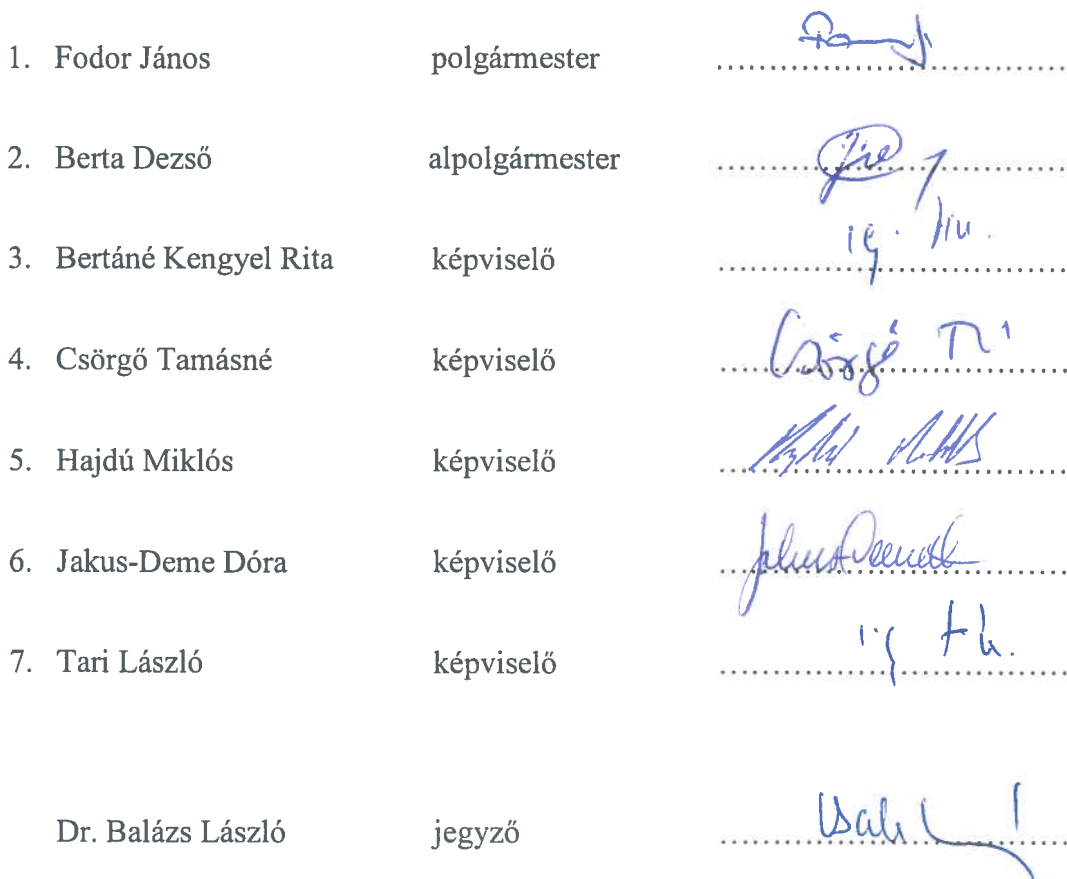 1. Fodor János polgármester
2. Berta Dezső alpolgármester
3. Bertáné Kengyel Rita képviselő
4. Csörgő Tamásné képviselő Csörgő
5. Hajdú Miklós képviselő
6. Jakus-Deme Dóra képviselő
7. Tari László képviselő
Dr. Balázs László jegyző